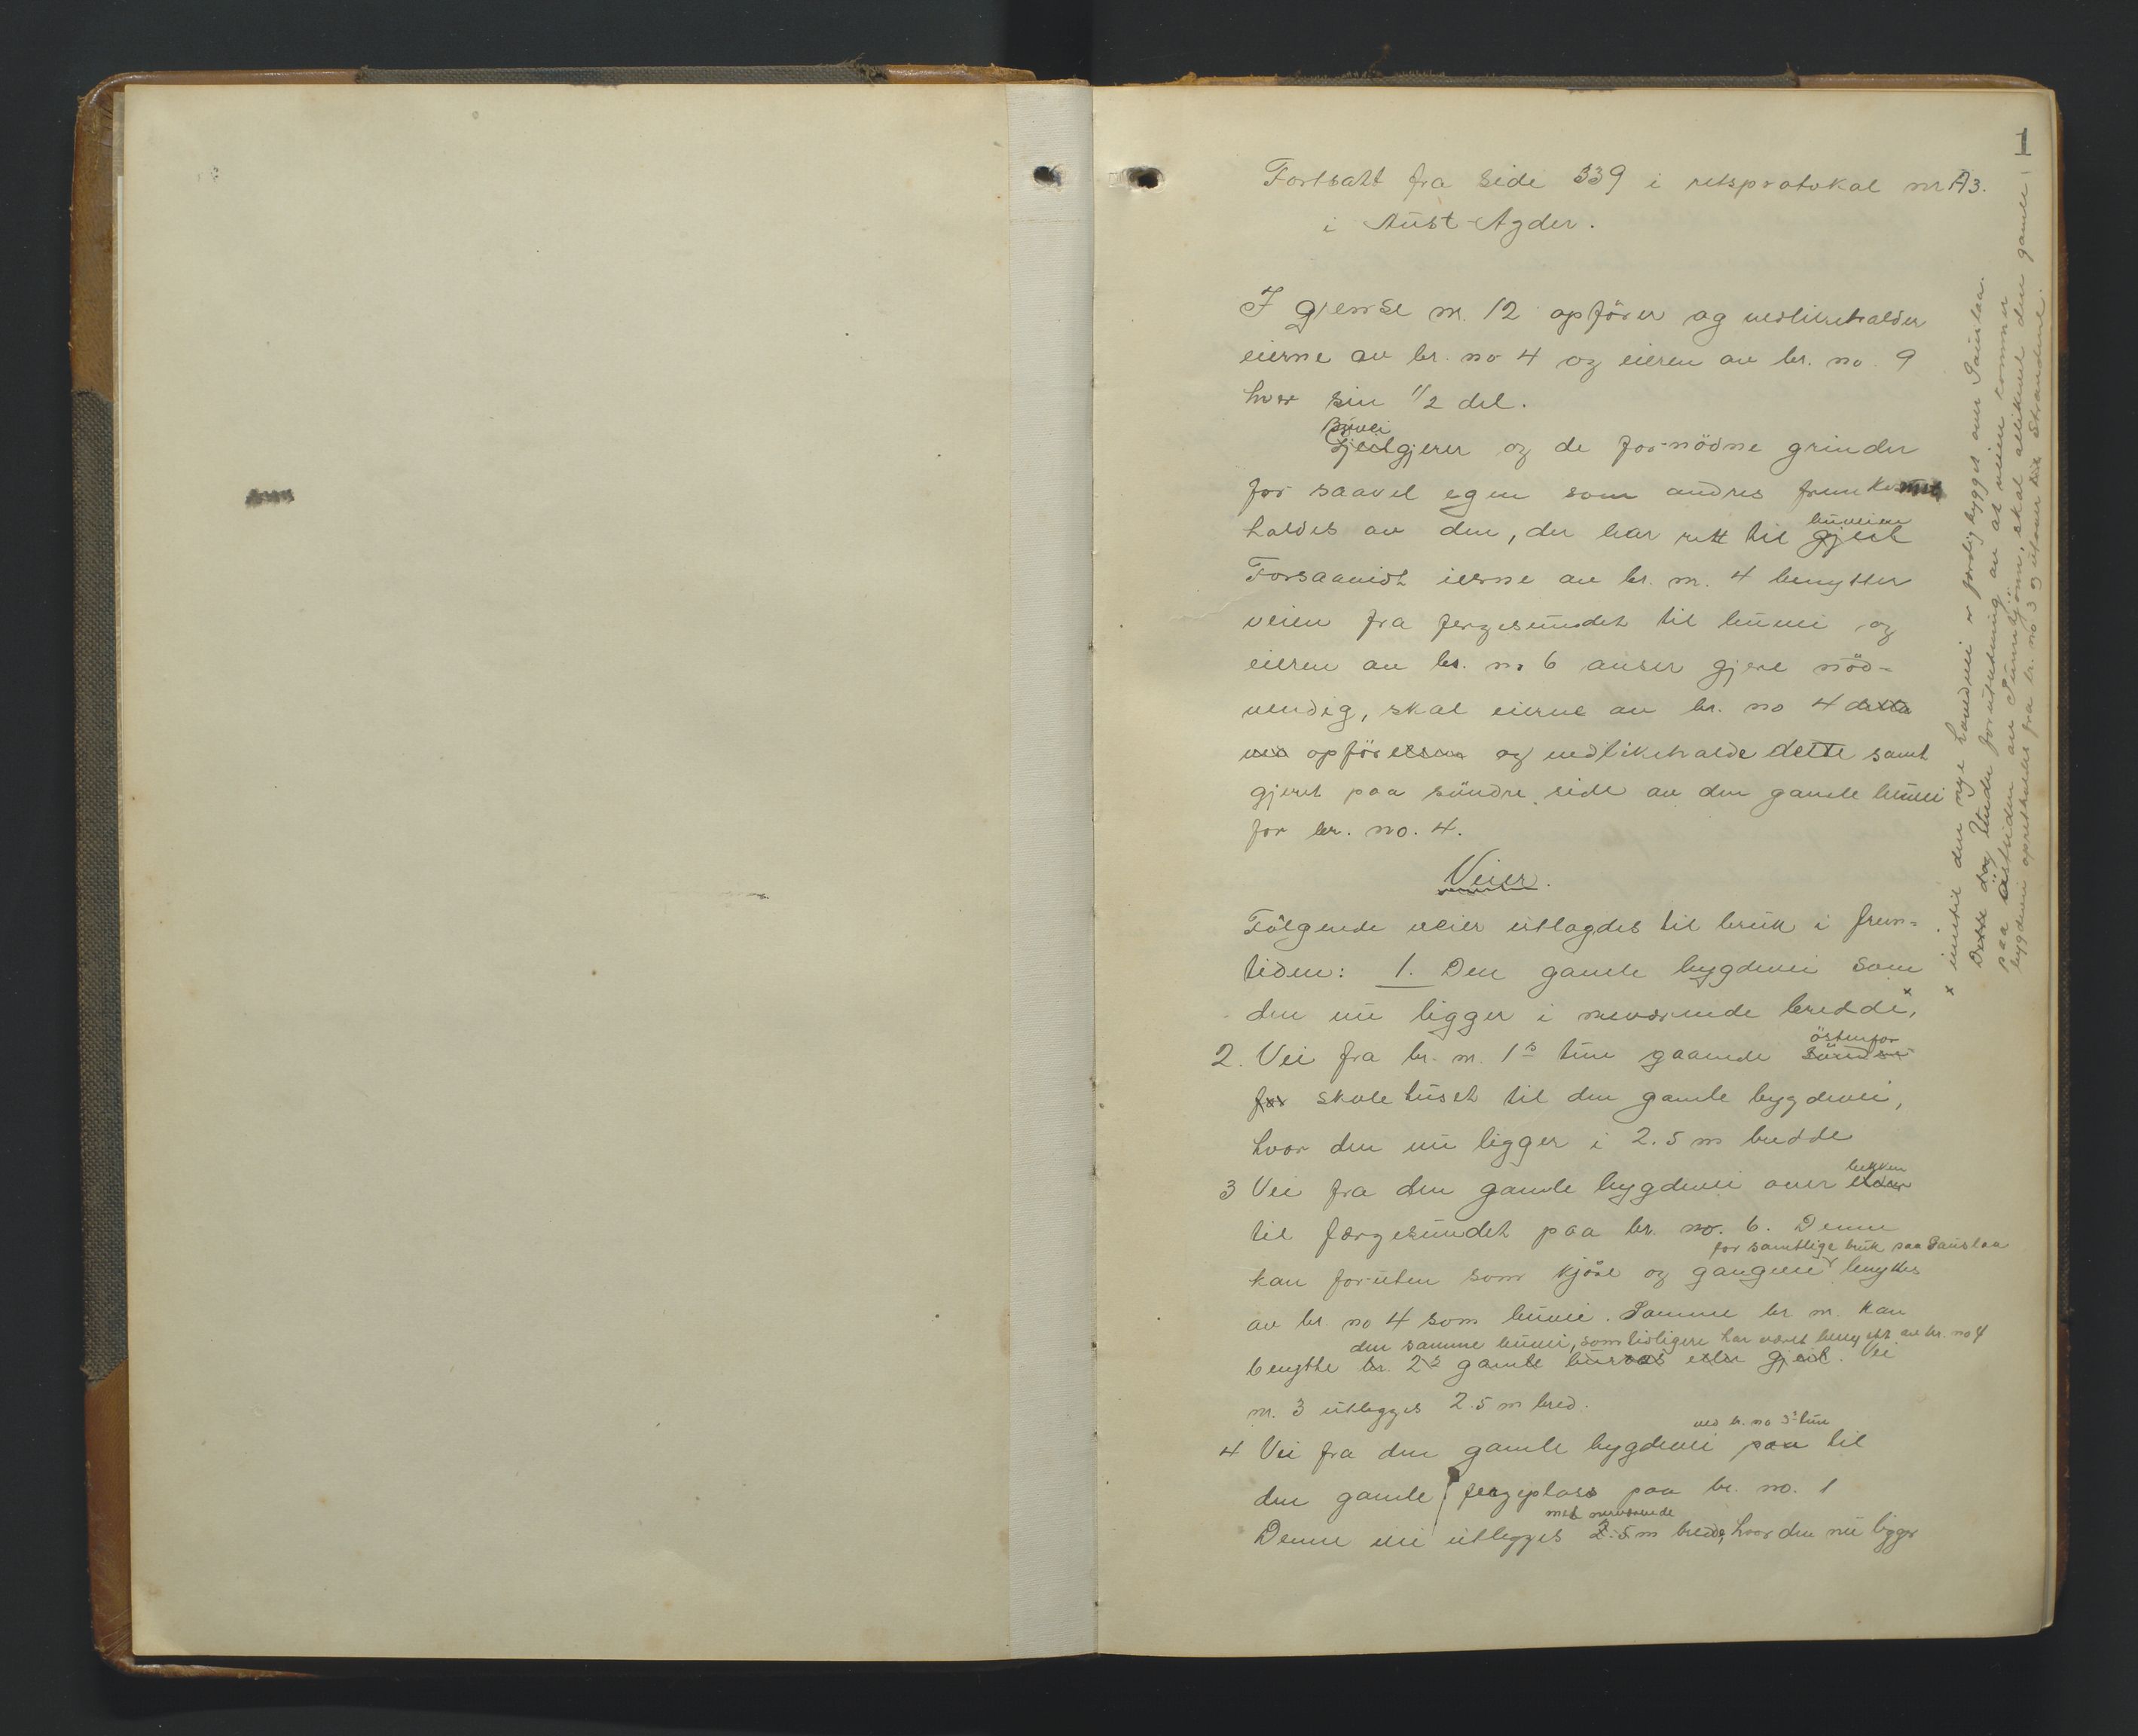 1
Fortsatt fra side 339 i retsprotokol nr A3.
i Aust-Agder.
I gjerde nr. 12 opfører og vedlikeholder
eierne av br. no 4 og eieren av br. no 9
hver sin 1/2 del.
Buvei
Gjeilgjerer og de fornödne grinder
for saavel egen som andres
holdes av den, der har rett til gjeil
buveien
Forsaavidt ierne av br. nr. 4 benytter
veien fra fergesundet til buvei og
eieren av br. no 6 anser gjere nöd-
vendig, skal eierne av br. no 4
opför og vedlikeholde dette samt
gjeret paa söndre side av den gamle buvei
for br. no. 4.
Veier.
Fölgende veier utlagdes til bruk i frem-
tiden: 1. Den gamle bygdevei som
den nu ligger i nuværende bredde x,
östenfor
2. Vei fra br. nr. 1s tun gaaende söndre
for skolehuset til den gamle bygdevei,
hvor den nu ligger i 2.5 m bredde
bekken
3 Vei fra den gamle bygdevei over
til færgesundet paa br. no. 6. Denne
for samtlige bruk paa Sauslaa
kan foruten som kjöre og gangvei benyttes
av br. no 4 som buvei. Samme br nr. kan
den samme buvei, som tidligere har været benyttet av br. no 4
benytte br. 2s gamle eller gjeil. Vei
nr. 3 utlegges 2.5 m bred.
ved br. no 3s tun
4 Vei fra den gamle bygdevei paa til
den gamle fergeplass paa br. no. 1
med nuværende
Denne vei utlegges 2.5 m bredde, hvor den nu ligger
x inntil den nye landevei er ferdig bygget over Sauslaa.
Dette dog under forutsetning av at veien kommer
paa östsiden av skal allikevel den gamle
bygdevei opretholdes fra br. no 3 og utover til Strandene.